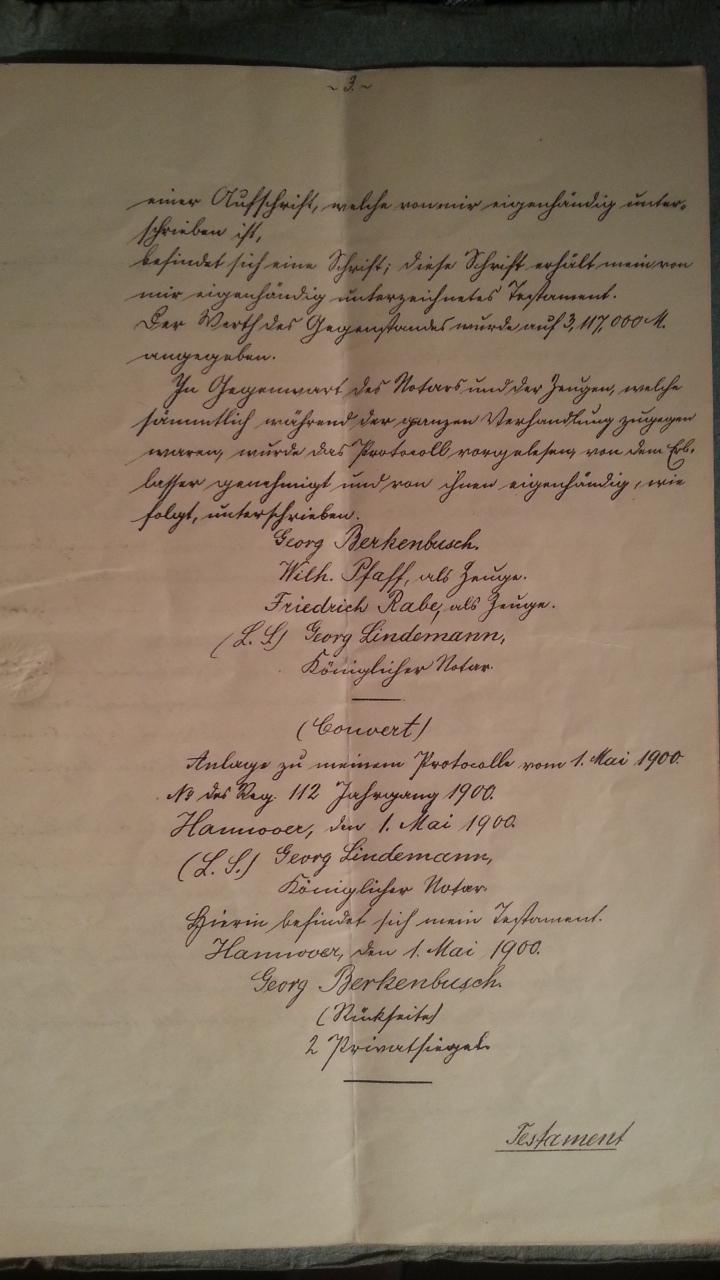 ~ 3. ~
einer Aufschrift, welche von mir eigenhändig unter-
schrieben ist,
befindet sich eine Schrift; diese Schrift erhält mein von
mir eigenhändig unterzeichnetes Testament.
Der Werth des Gegenstandes wurde auf 3,117,000 M.
angegeben.
In Gegenwart des Notars und der Zeugen, welche
sämmtlich während der ganzen Verhandlung zugegen
waren, wurde das Protocoll vorgelesen, von dem Erb-
lasser genehmigt und von ihnen eigenhändig, wie
folgt, unterschrieben.
Georg Berkenbusch.
Wilh. Pfaff, als Zeuge.
Friedrich Rabe, als Zeuge.
(L. S.) Georg Lindemann,
Königlicher Notar.
(Couvert)
Anlage zu meinem Protocolle vom 1. Mai 1900.
No des Reg. 112 Jahrgang 1900.
Hannover, den 1. Mai 1900.
(L. S.) Georg Lindemann,
Königlicher Notar.
Hierin befindet sich mein Testament.
Hannover, den 1. Mai 1900.
Georg Berkenbusch.
(Rückseite)
2 Privatsiegel.
Testament